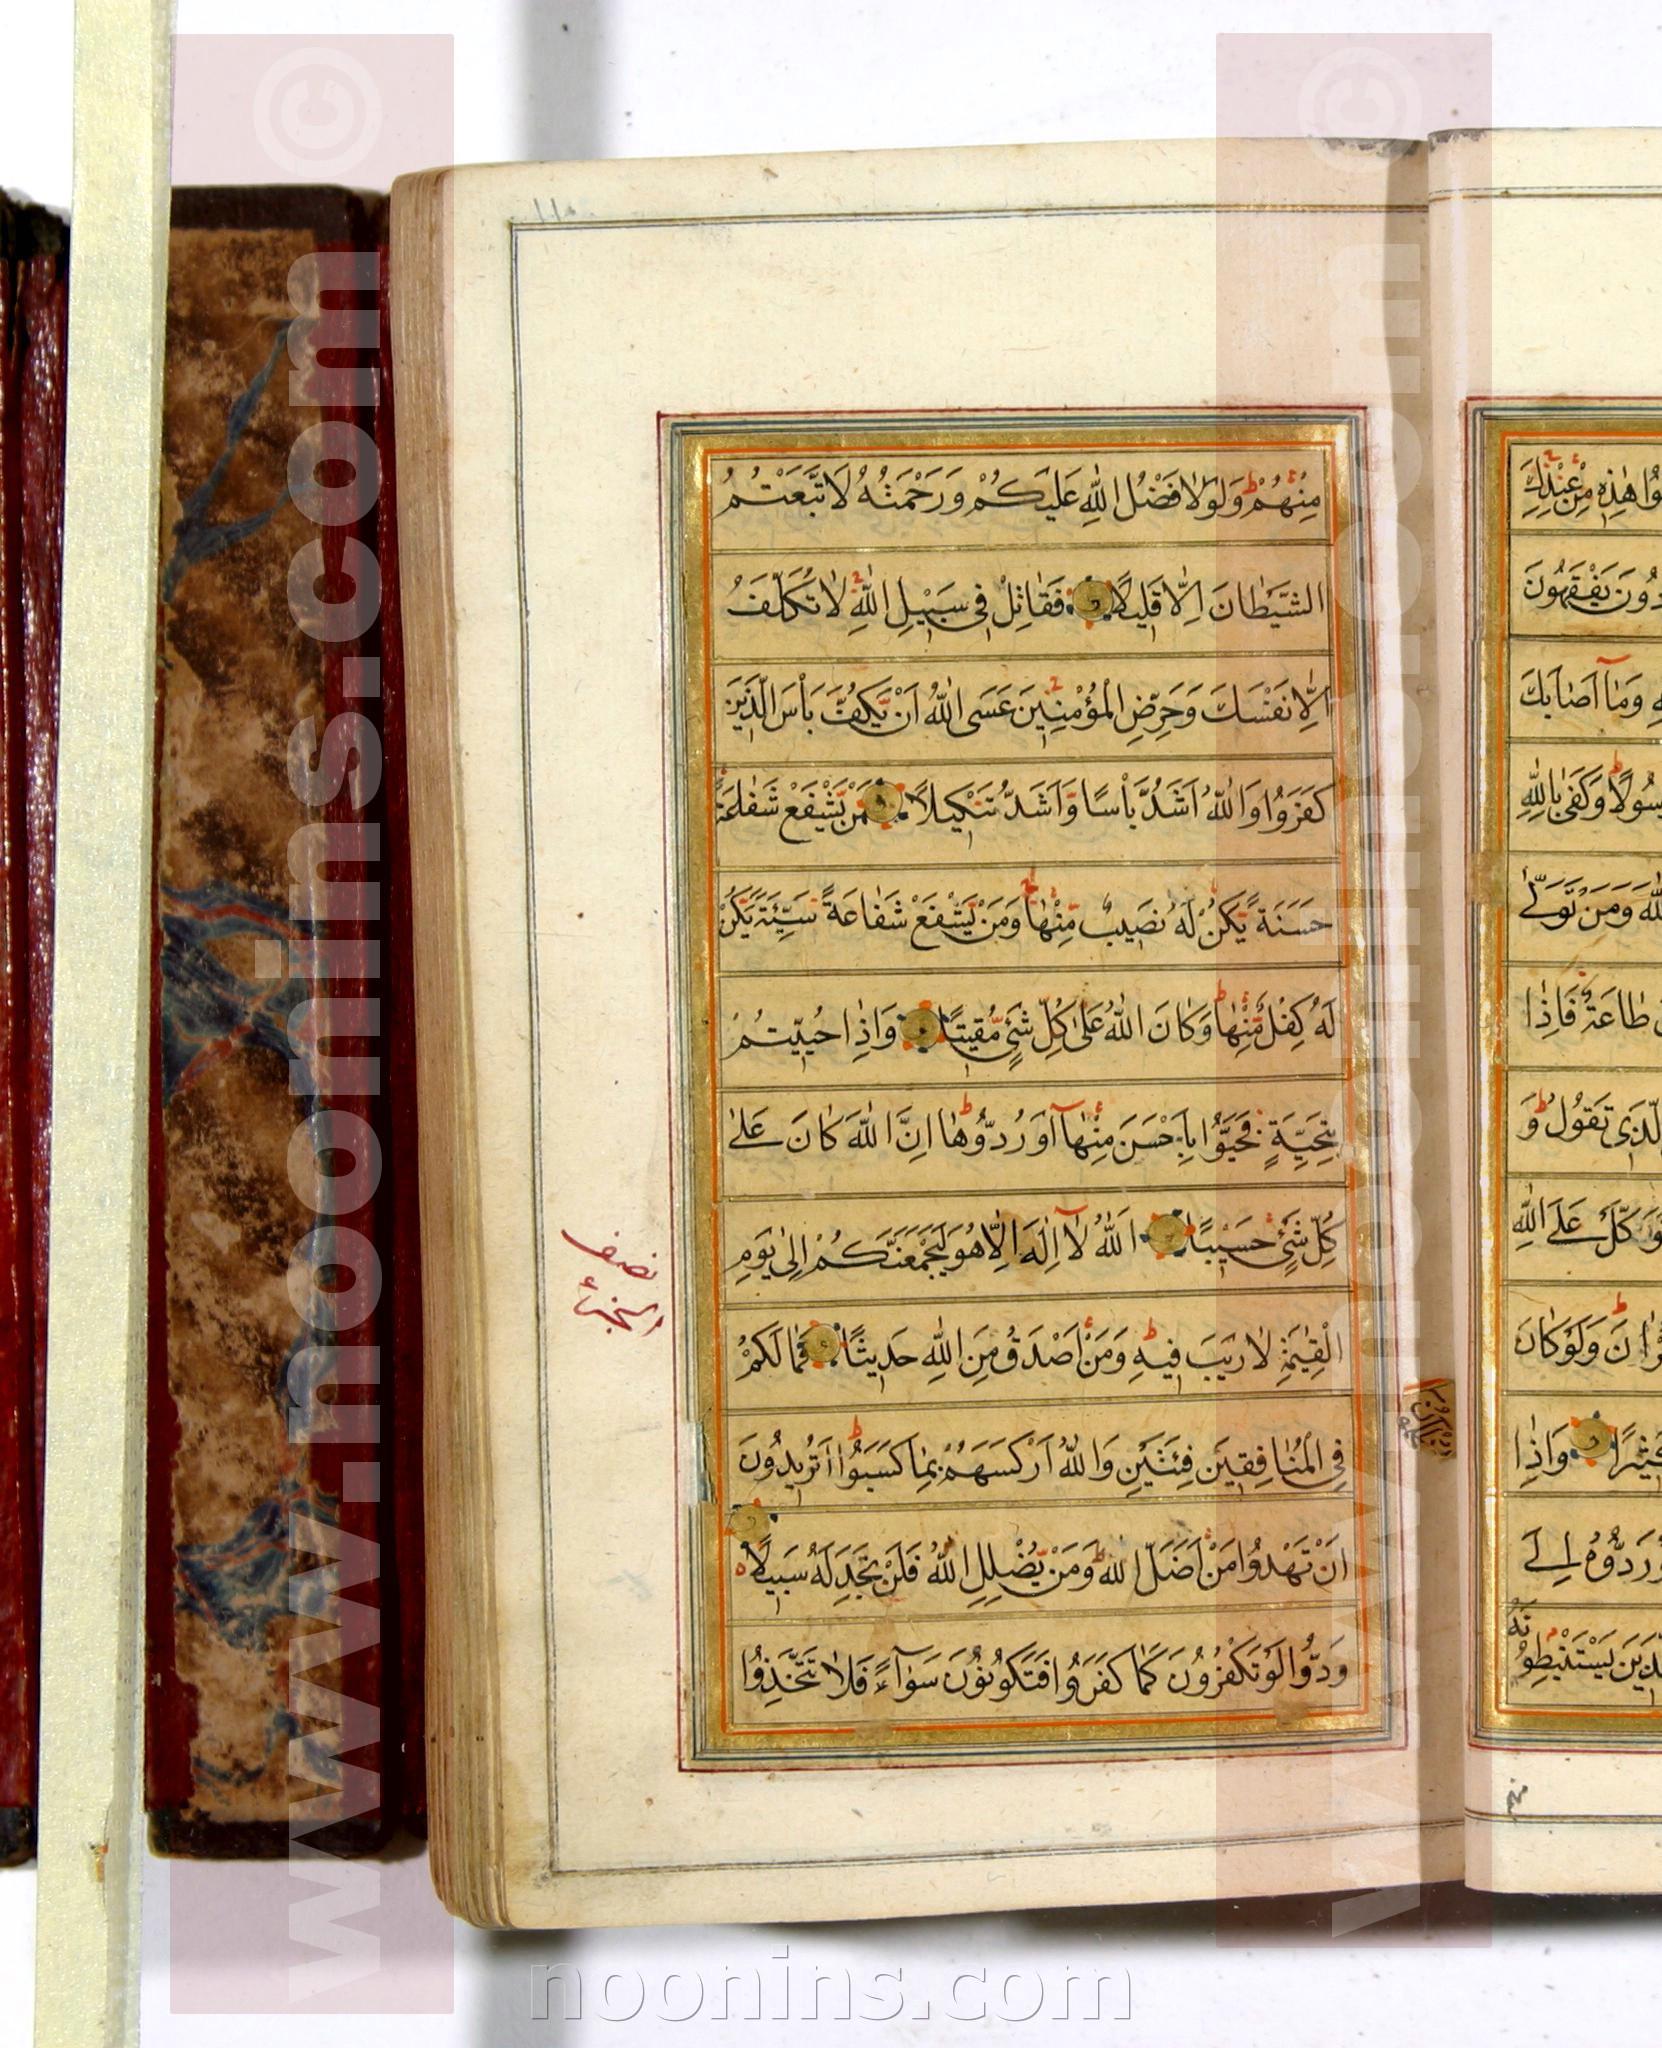 مِنْهُمْ وَلَوْلَا فَضْلُ اللّٰهِ عَلَيْكُمْ وَرَحْمَتُهُ لَاتَّبَعْتُمُ
الشَّيْطَانَ اِلَّا قَلِيلًا فَقَاتِلْ فِى سَبِيْلِ اللّٰهِ لَا تُكَلَّفُ
اِلَّا نَفْسَكَ وَحَرِّضِ الْمُؤْمِنِيْنَ عَسَى اللّٰهُ اَنْ يَّكُفَّ بَاْسَ الَّذِيْنَ
كَفَرُوا وَاللّٰهُ اَشَدُّ بَاْسًا وَاَشَدُّ تَنْكِيلًا مَنْ يَشْفَعْ شَفٰاعَةً
حَسَنَةً يَكُنْ لَهُ نَصِيبٌ مِنْهٰا وَمَنْ يَشْفَعْ شَفٰاعَةً سَيِّئَةً يَكُنْ
لَهُ كِفْلٌ مِنْهٰا وَكٰانَ اللّٰهُ عَلٰى كُلِّ شَىْءٍ مُقِيتًا وَاِذٰا حُيِّيتُمْ
بِتَحِيَّةٍ فَحَيُّوا بِاَحْسَنَ مِنْهٰا اَوْ رُدُّوهٰا اِنَّ اللّٰهَ كٰانَ عَلٰى
كُلِّ شَىْءٍ حَسِيْبًا اَللّٰهُ لٰا اِلٰهَ اِلَّا هُوَ لَيَجْمَعَنَّكُمْ اِلٰى يَوْمِ
الْقِيٰمَةِ لٰا رَيْبَ فِيهِ وَمَنْ اَصْدَقُ مِنَ اللّٰهِ حَدِيثًا فَمٰا لَكُمْ
فِى الْمُنٰافِقِيْنَ فِئَتَيْنِ وَاللّٰهُ اَرْكَسَهُمْ بِمٰا كَسَبُوا اَتُرِيدُونَ
اَنْ تَهْدُوا مَنْ اَضَلَّ اللّٰهُ وَمَنْ يُضْلِلِ اللّٰهُ فَلَنْ تَجِدَ لَهُ سَبِيلًا
وَدُّوا لَوْ تَكْفُرُونَ كَمٰا كَفَرُوا فَتَكُونُونَ سَوٰاءً فَلٰا تَتَّخِذُوا
نصف
الجزء
وا هٰذِهِ مِنْ عِنْدِكَ
دُونَ يَفْقَهُونَ
وَمٰا اَصٰابَكَ
سُولًا وَكَفٰى بِاللّٰهِ
اللّٰهَ وَمَنْ تَوَلّٰى
طٰاعَةٌ فَاِذٰا
الَّذِى تَقُولُ وَ
وَتَوَكَّلْ عَلَى اللّٰهِ
اٰنَ وَلَوْ كٰانَ
كَثِيرًا وَاِذٰا
وَرَدُّوهُ اِلَى
الَّذِينَ يَسْتَنْبِطُونَهُ
منهم
www.noonins.com ©
www.noonins.com ©
noonins.com